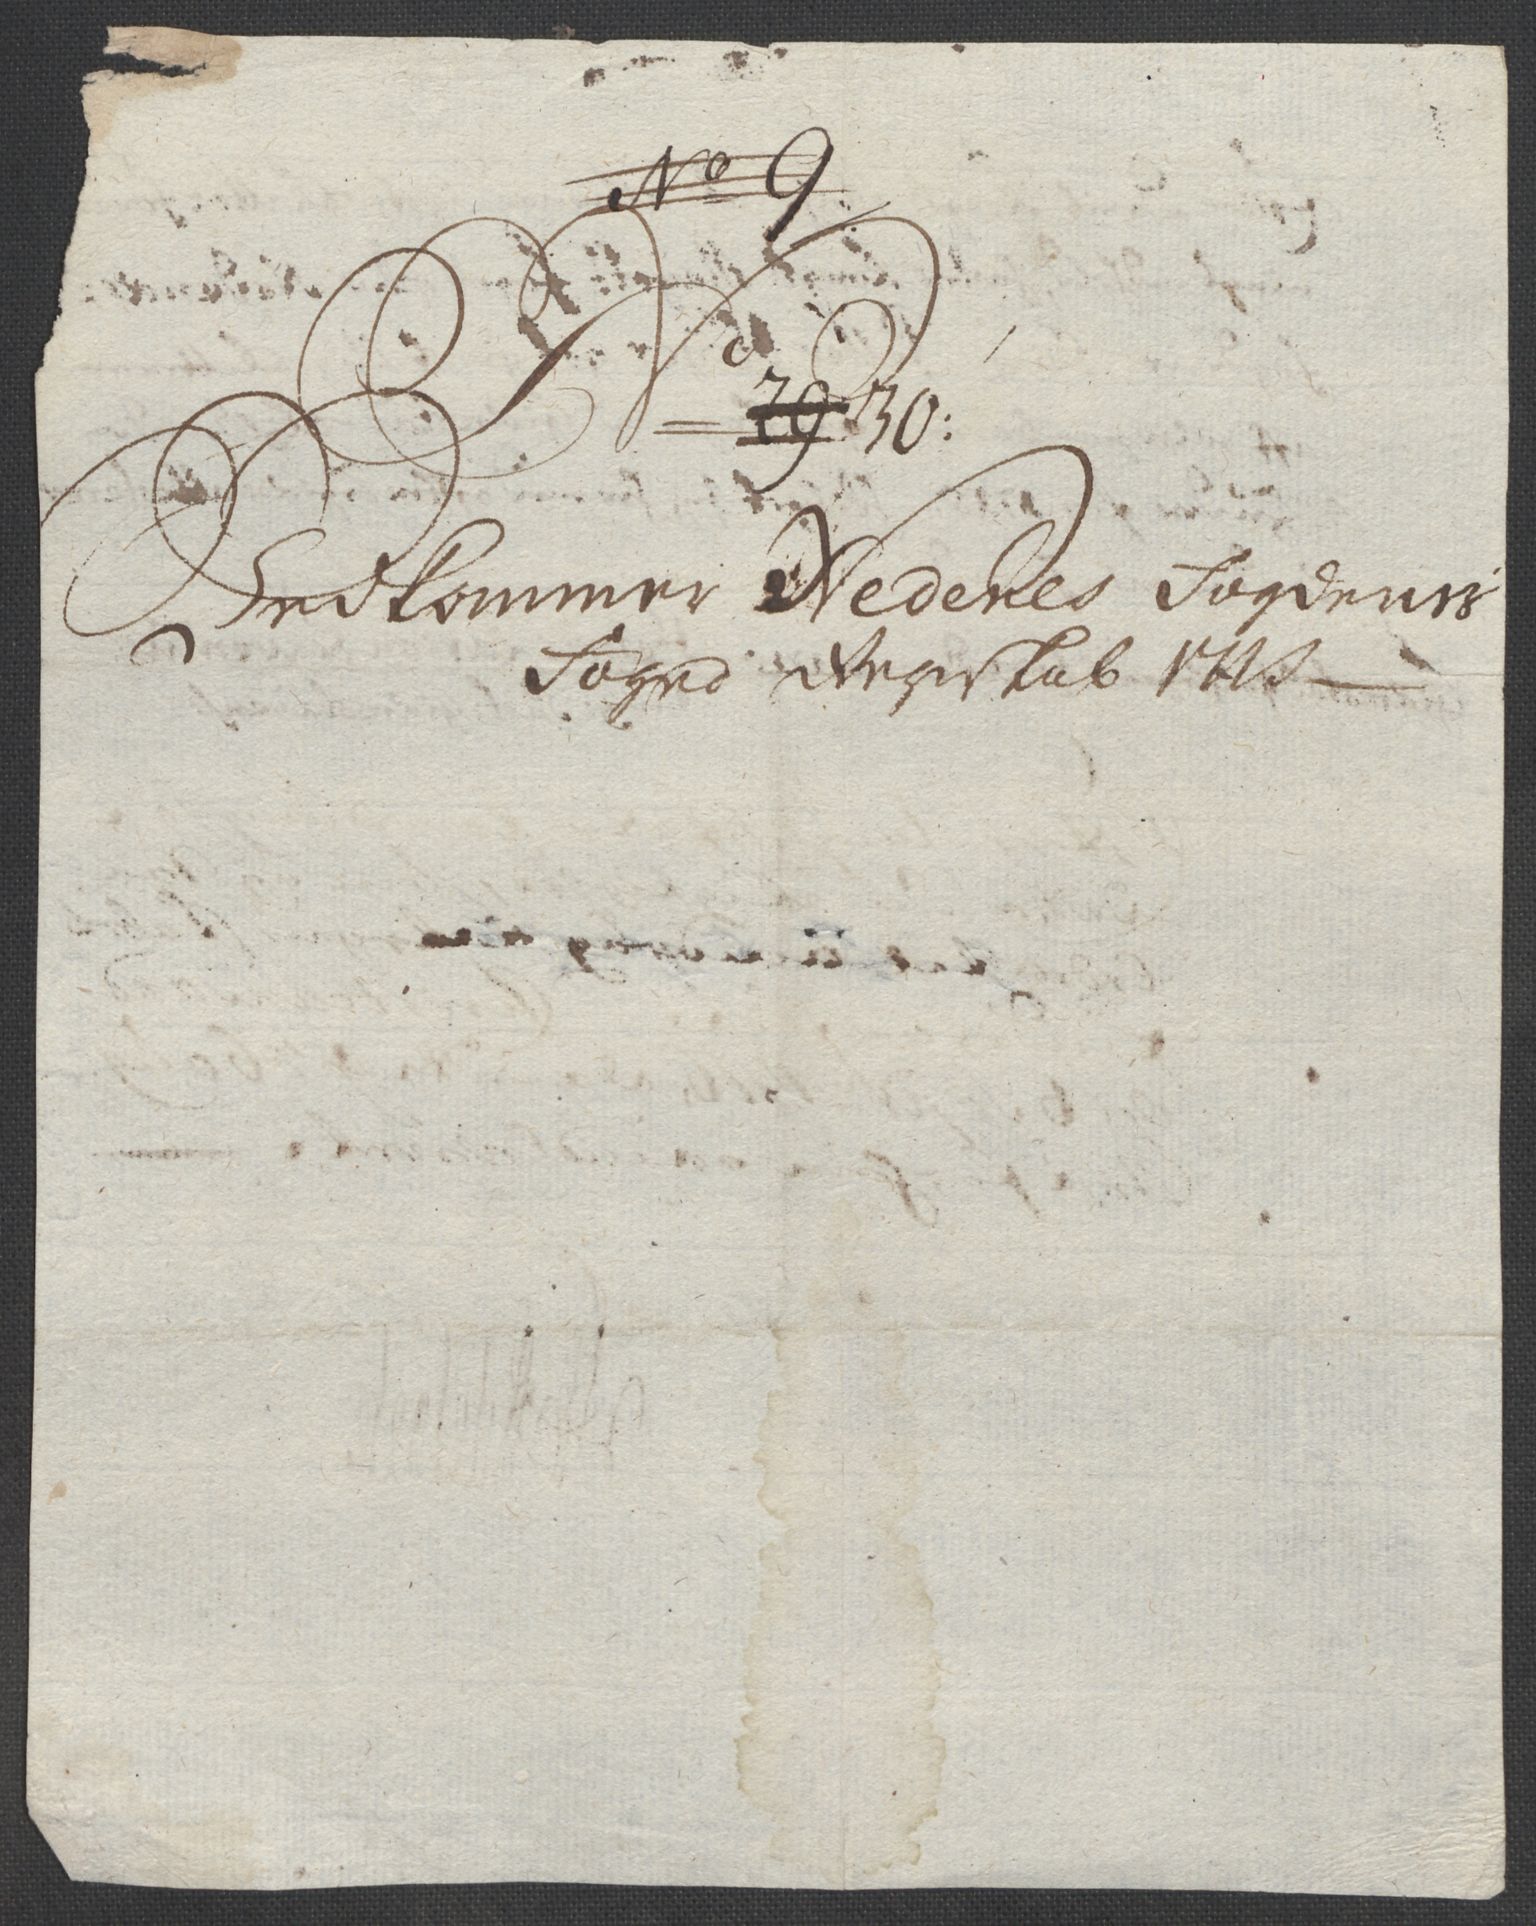 No 9
No
29 30:
Vedkommer Nedenes Fogderies
Foged Regnskab